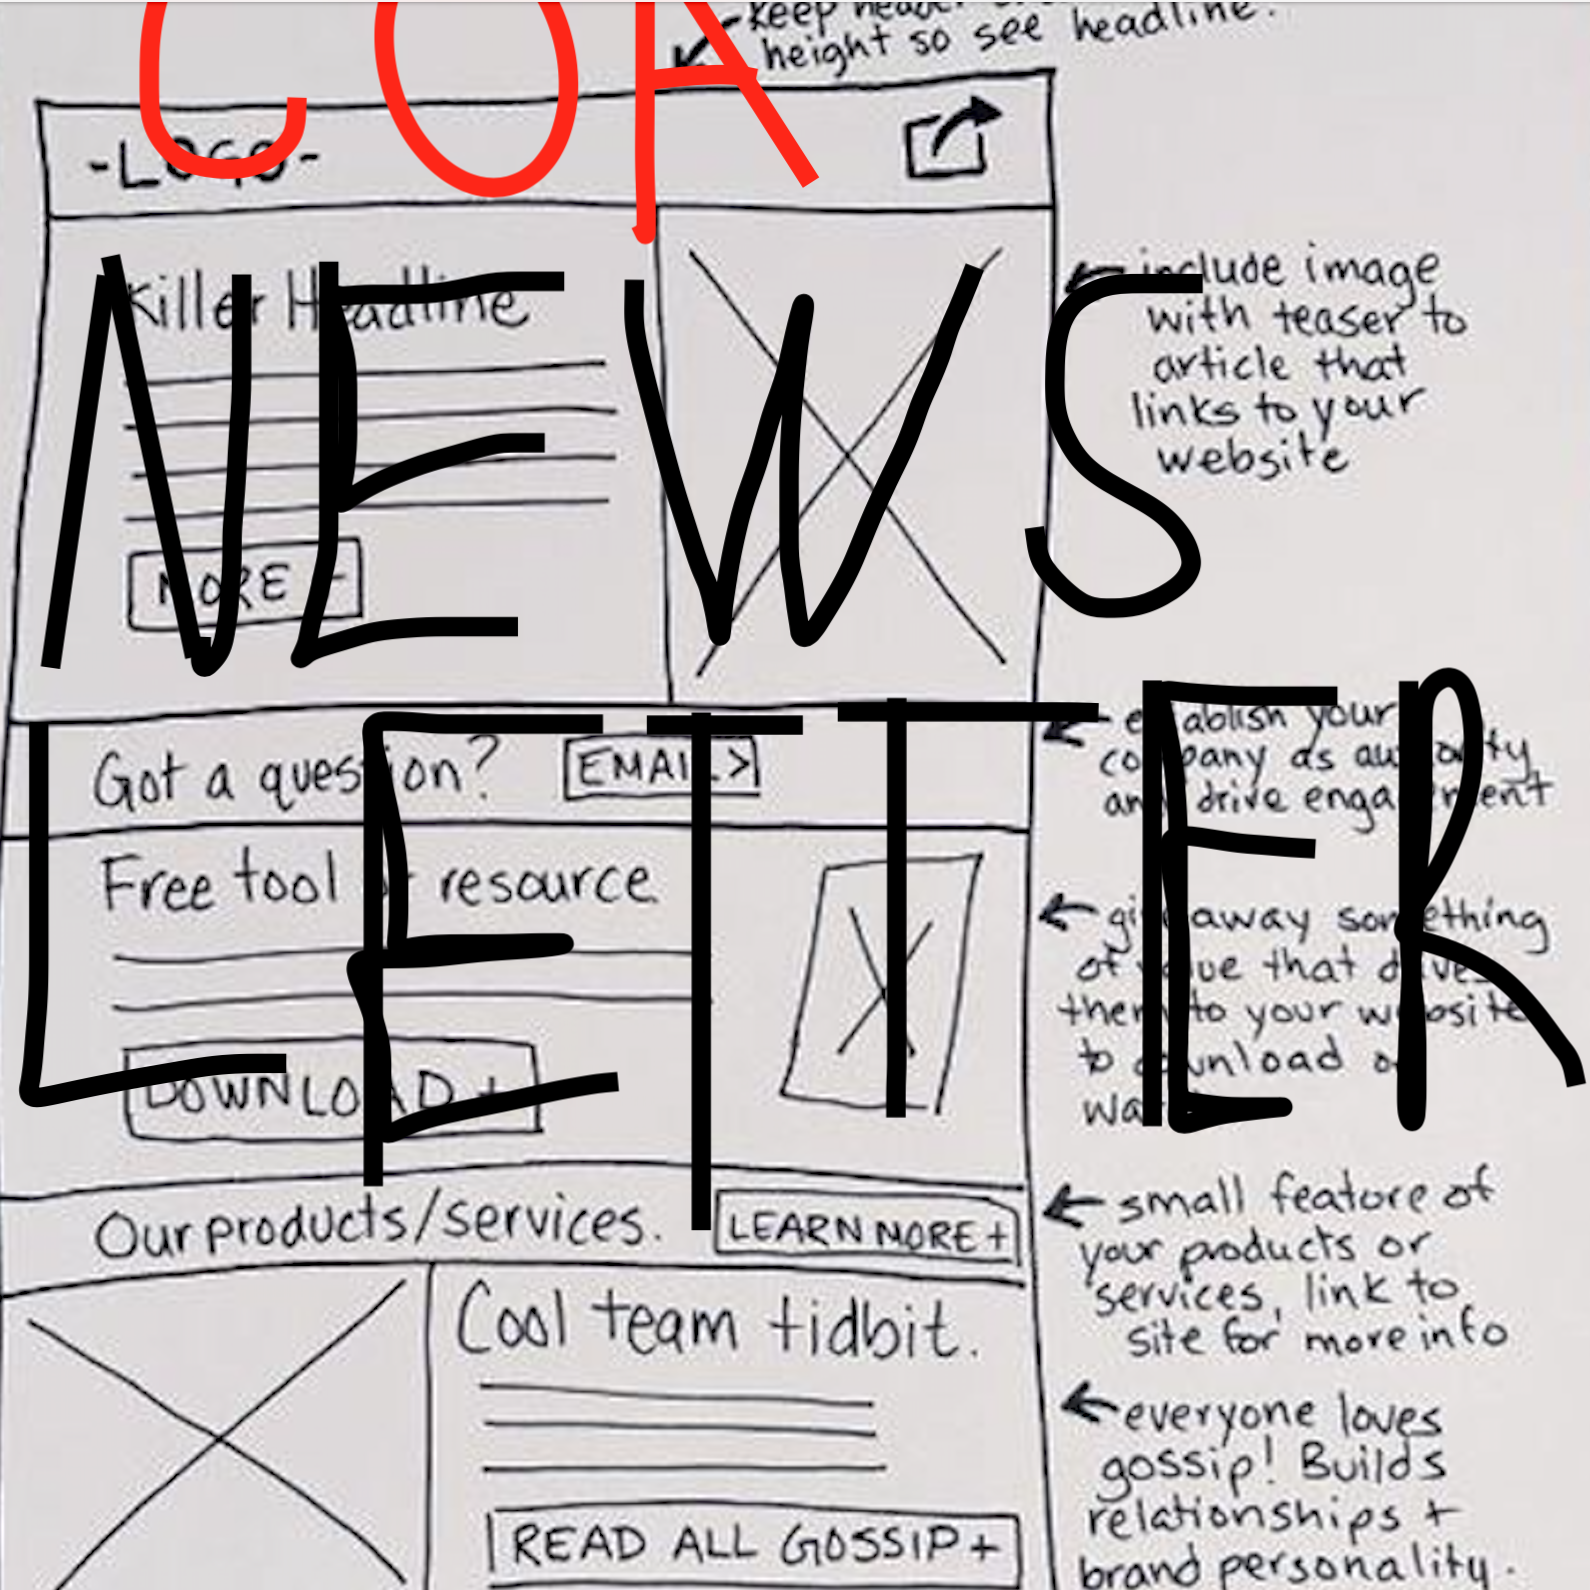 keep
height so see headline.
COR
-LOGO-
NEWS
Killer Headline
MORE
include image
with teaser to
article that
links to your
website
LETTER
Got a question?
EMAIL>
establish your
company as authority
and drive engagement
Free tool or resource
DOWNLOAD +
give away something
of value that drives
them to your website
to download or
Our products/services.
LEARN MORE +
small feature of
your products or
services, link to
site for more info
Cool team tidbit.
READ ALL GOSSIP +
everyone loves
gossip! Builds
relationships +
brand personality.